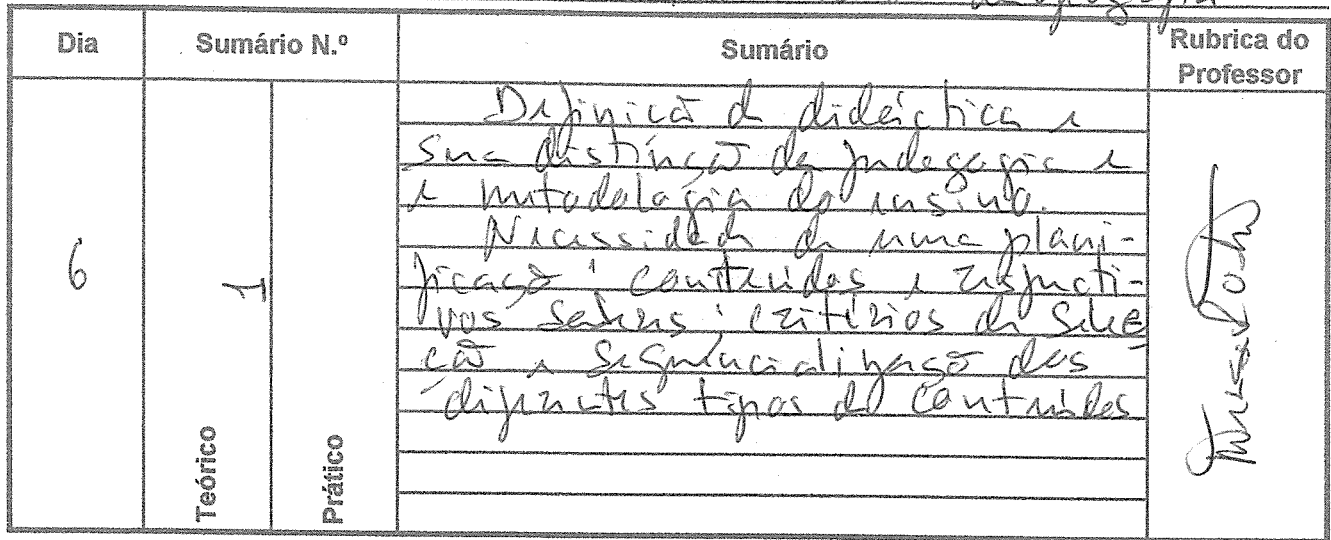 Dia
Sumário N.º
Sumário
Rubrica do
Professor
6
1
Teórico
Prático
Definição de didáctica e
sua distinção da pedagogia e
e metodologia do ensino.
Necessidade de uma plani-
ficação: conteúdos e respecti-
vos saberes: critérios de sele
ção e sequencialização dos
diferentes tipos de conteúdos